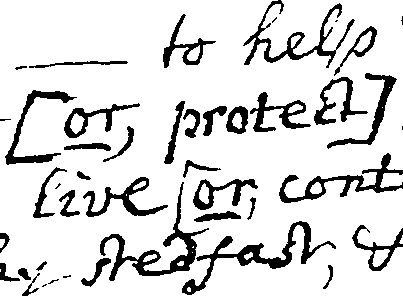 —— to help
[or, protect]
live [or, cont
hy stedfast, &